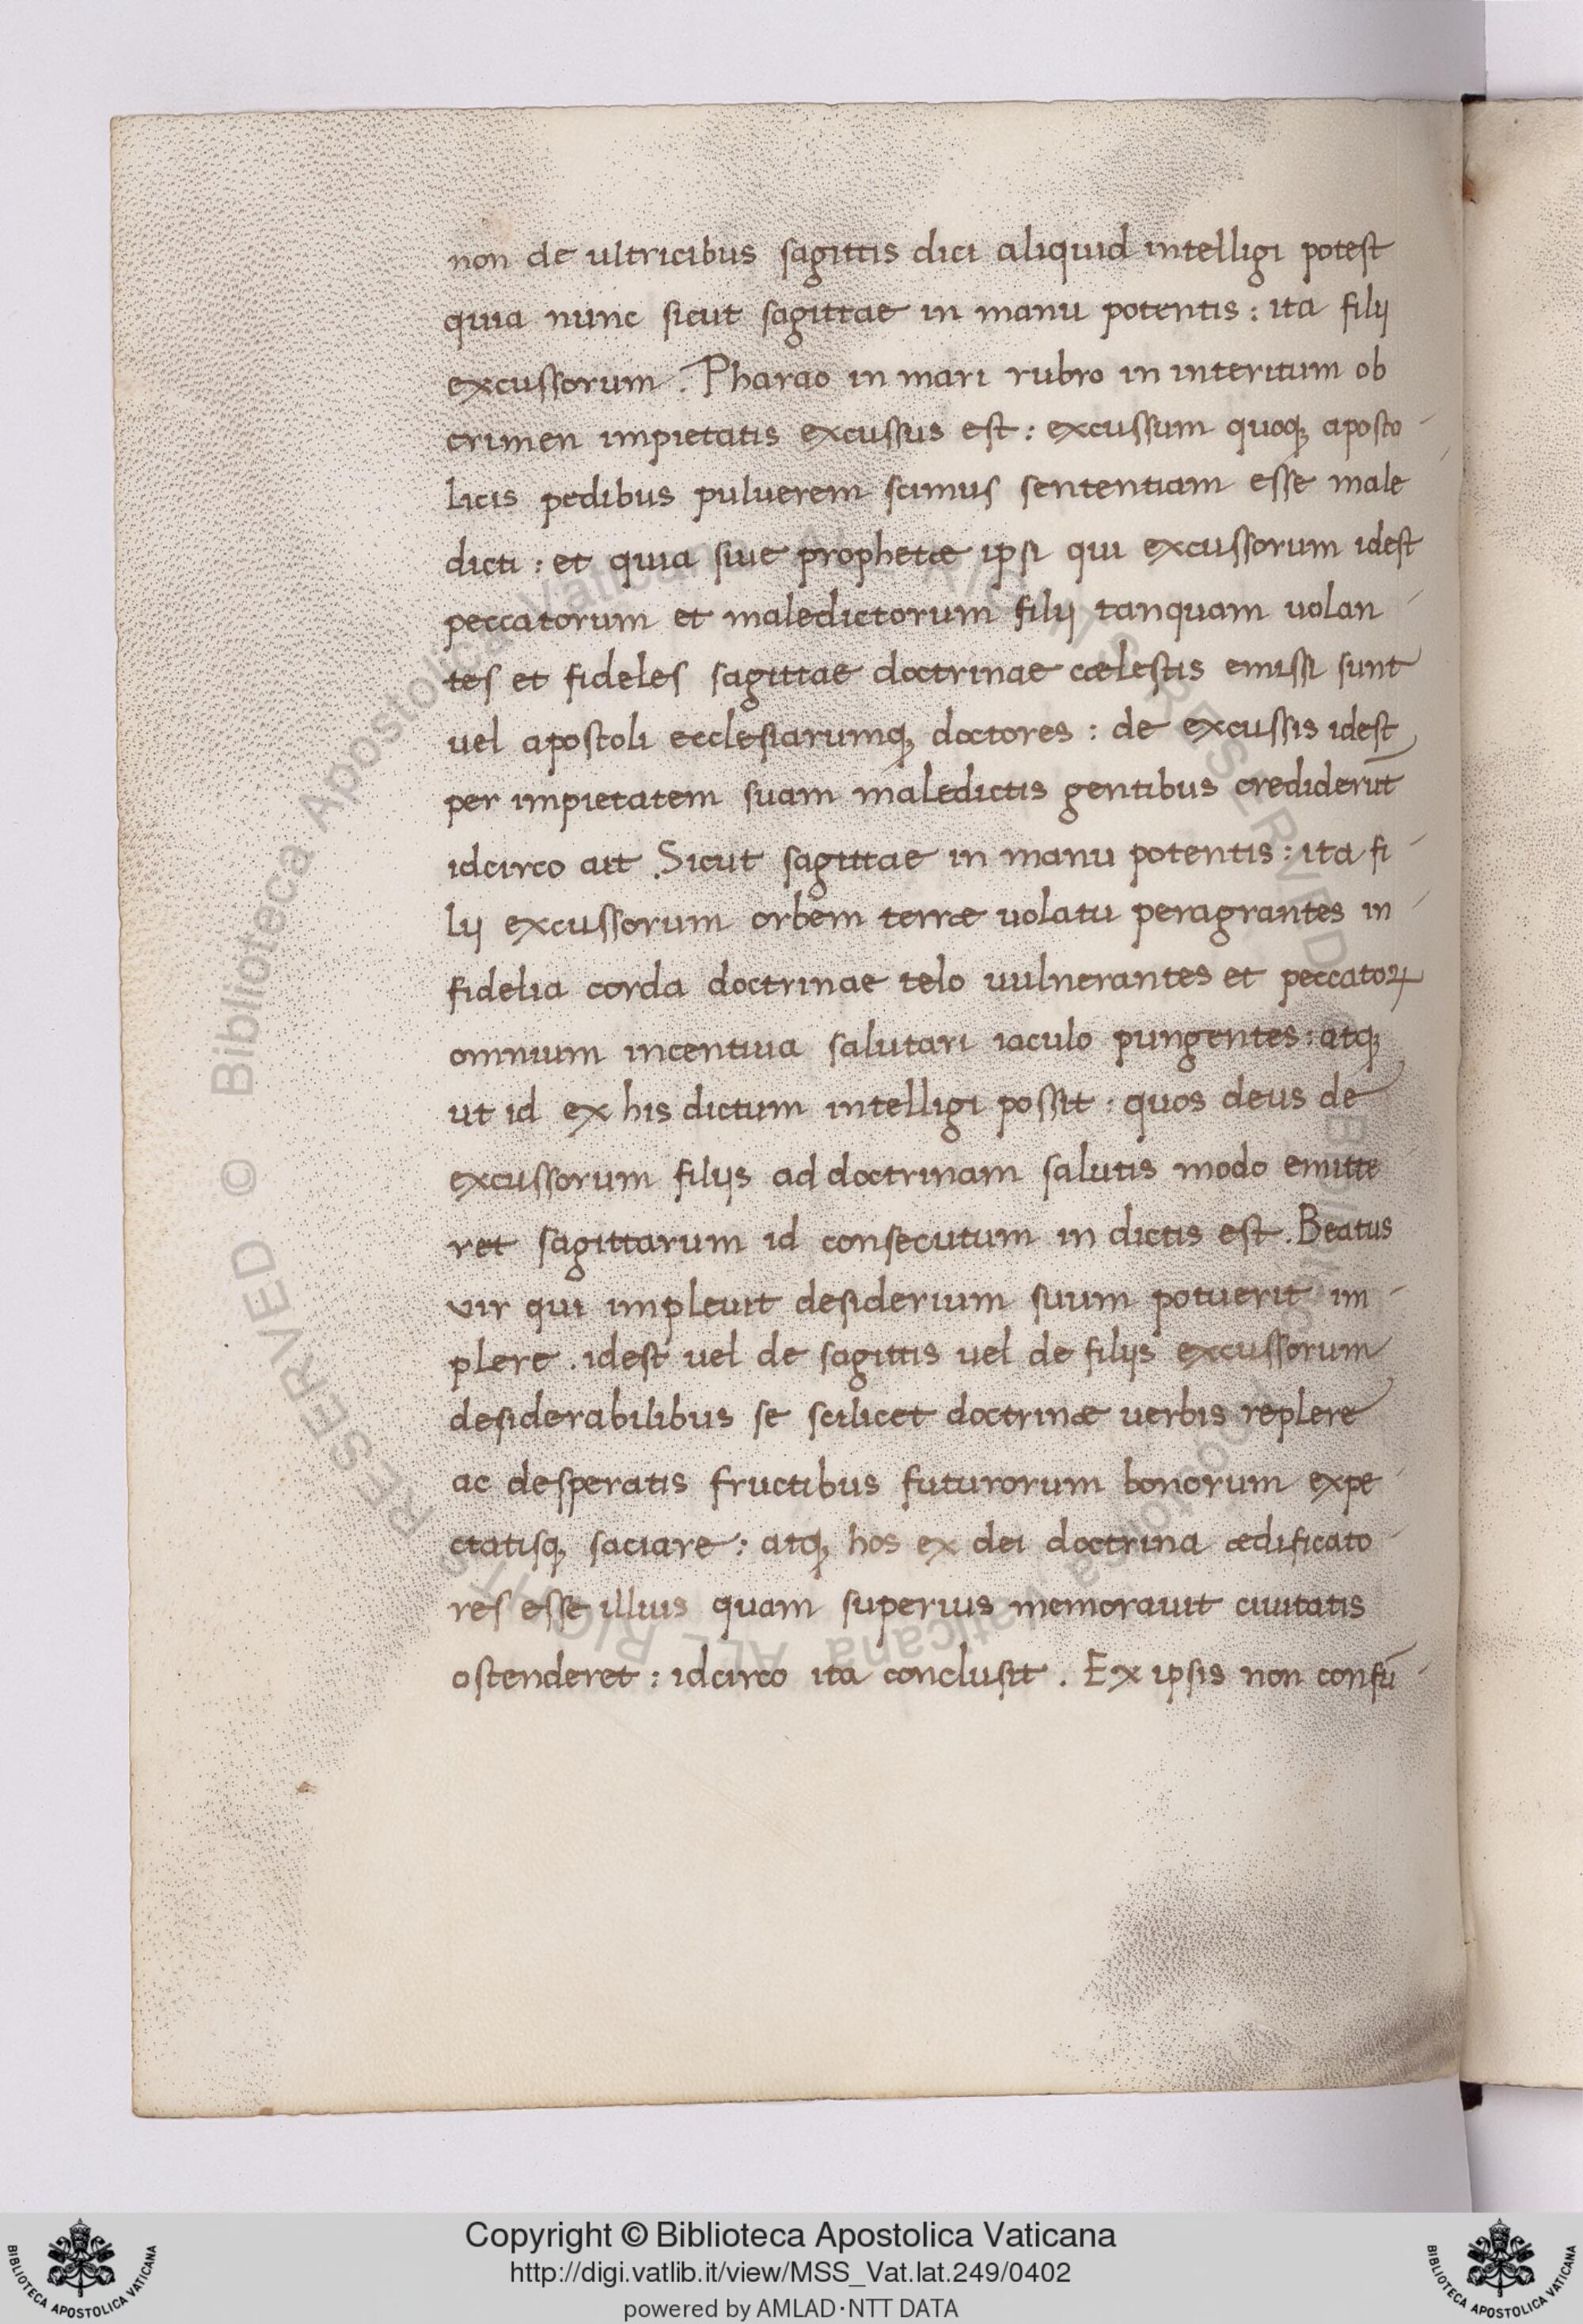 non de ultricibus sagittis dici aliquid intelligi potest
quia nunc sicut sagittae in manu potentis : ita filij
excussorum . Pharao in mari rubro in interitum ob
crimen impietatis excussus est : excussum quoqꝫ aposto-
licis pedibus puluerem scimus sententiam esse male-
dicti : et quia siue prophetæ ipsi qui excussorum idest
peccatorum et maledictorum filij tanquam uolan-
tes et fideles sagittae doctrinae cælestis emissi sunt
uel apostoli ecclesiarumqꝫ doctores : de excussis idest
per impietatem suam maledictis gentibus crediderūt
idcirco ait . Sicut sagittae in manu potentis : ita fi-
lij excussorum orbem terræ uolatu peragrantes in-
fidelia corda doctrinae telo uulnerantes et peccatoꝝ
omnium incentiua salutari iaculo pungentes : atqꝫ
ut id ex his dictum intelligi possit : quos deus de
excussorum filijs ad doctrinam salutis modo emitte-
ret sagittarum id consecutum in dictis est . Beatus
vir qui impleuit desiderium suum potuerit im-
plere . idest uel de sagittis uel de filijs excussorum
desiderabilibus se scilicet doctrinæ uerbis replere
ac desperatis fructibus futurorum bonorum expe-
ctatisqꝫ saciare : atqꝫ hos ex dei doctrina ædificato-
res esse illius quam superius memorauit ciuitatis
ostenderet : idcirco ita conclusit . Ex ipsis non confū-
© Biblioteca Apostolica Vaticana ALL RIGHTS RESERVED
Copyright © Biblioteca Apostolica Vaticana
http://digi.vatlib.it/view/MSS_Vat.lat.249/0402
powered by AMLAD·NTT DATA
BIBLIOTECA APOSTOLICA VATICANA
BIBLIOTECA APOSTOLICA VATICANA